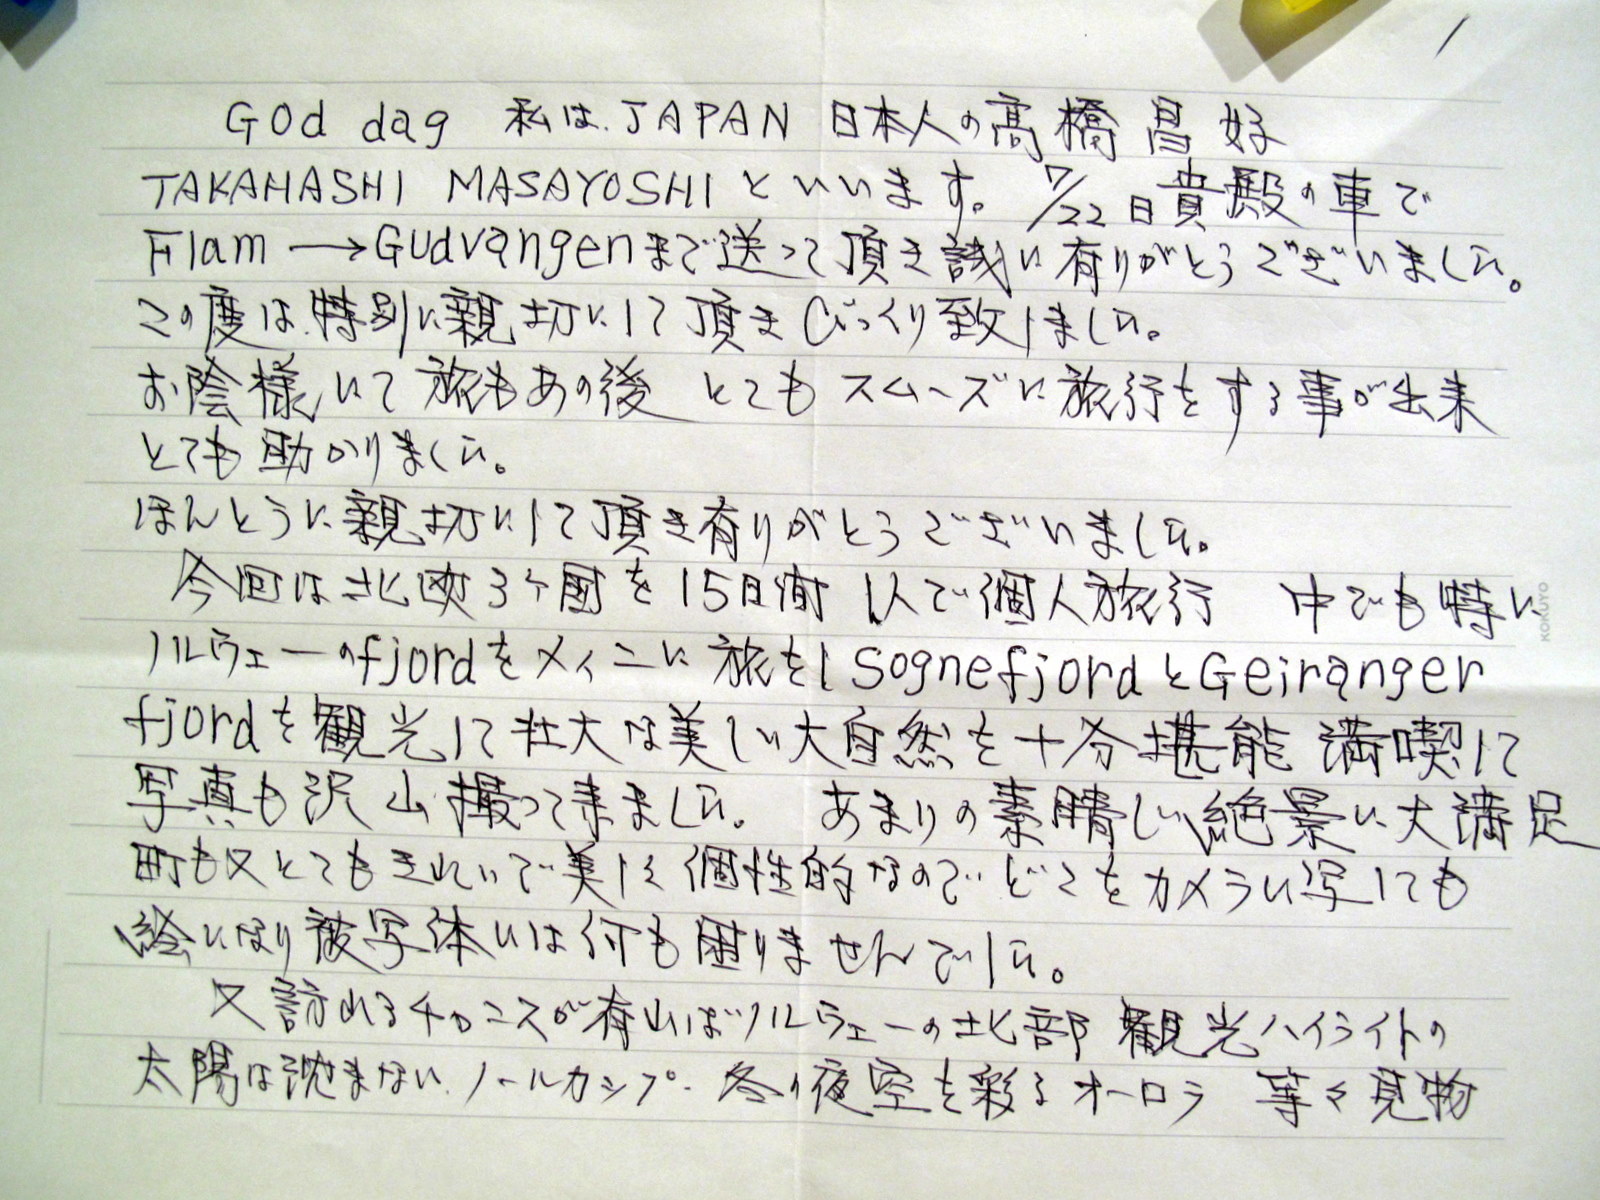 1
God dag 私は JAPAN 日本人の髙橋昌好
TAKAHASHI MASAYOSHI といいます。 7/22日貴殿の車で
Flam → Gudvangenまで送って頂き誠に有りがとうございました。
この度は特別に親切にして頂きびっくり致しました。
お陰様にて旅もあの後 とてもスムーズに旅行をする事が出来
とても助かりました。
ほんとうに親切にして頂き有りがとうございました。
今回は北欧3ヶ国を15日間 1人で個人旅行 中でも特に
ノルウェーのfjordをメインに旅をし SognefjordとGeiranger
fjordを観光して壮大な美しい大自然を十分堪能 満喫して
写真も沢山撮って来ました。 あまりの素晴しい絶景に大満足
町も又とてもきれいで美しく個性的なのでどこをカメラに写しても
絵になり被写体には何も困りませんでした。
又訪れるチャンスが有ればノルウェーの北部 観光ハイライトの
太陽は沈まない ノールカップ 冬の夜空を彩るオーロラ 等々見物
KOKUYO